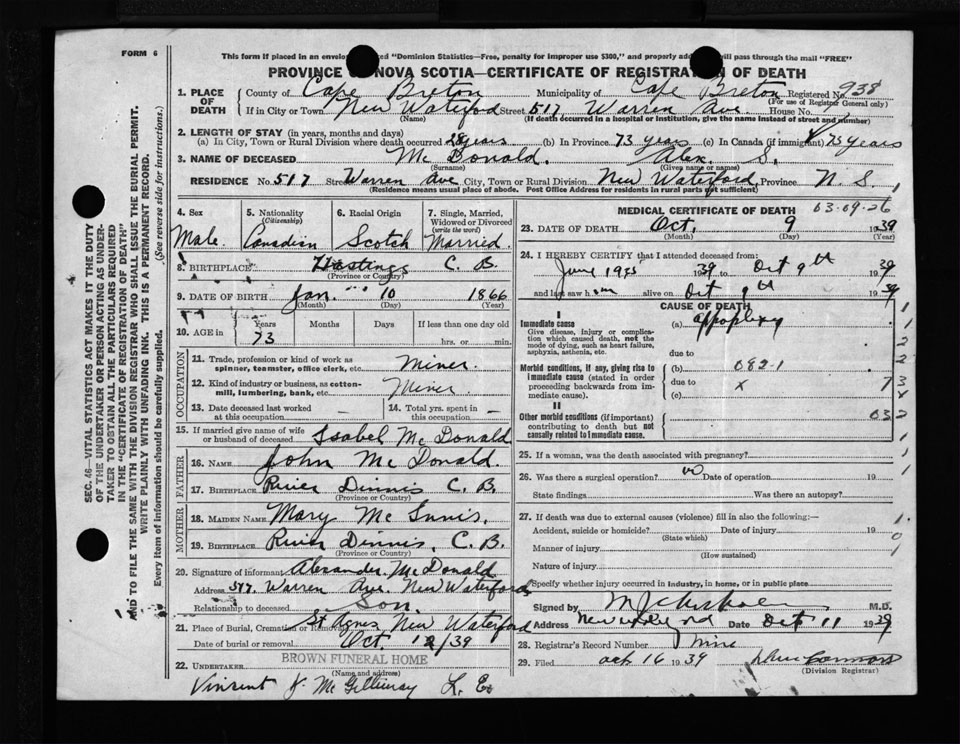 FORM 6
This form if placed in an envelo ed "Dominion Statistics—Free, penalty for improper use $300," and properly ad will pass through the mail "FREE"
PROVINCE OF NOVA SCOTIA—CERTIFICATE OF REGISTRATION OF DEATH
1. PLACE OF DEATH County of Cape Breton Municipality of Cape Breton Registered No. 938
(For use of Registrar General only)
If in City or Town New Waterford Street 517 Warren Ave House No.
(Name) (If death occurred in a hospital or institution, give the name instead of street and number)
2. LENGTH OF STAY (in years, months and days)
(a) In City, Town or Rural Division where death occurred 28 years (b) In Province 73 years (c) In Canada (if immigrant) 73 years
3. NAME OF DECEASED Mc Donald. Alex. S.
(Surname) (Given name or names)
RESIDENCE No. 517 Street Warren Ave City, Town or Rural Division New Waterford Province N. S.
(Residence means usual place of abode. Post Office Address for residents in rural parts not sufficient)
4. Sex Male.
5. Nationality (Citizenship) Canadian
6. Racial Origin Scotch
7. Single, Married, Widowed or Divorced (write the word) Married.
8. BIRTHPLACE Hastings C. B.
(Province or Country)
9. DATE OF BIRTH Jan. 10 1866
(Month) (Day) (Year)
10. AGE in Years Months Days If less than one day old
73 hrs. or min.
OCCUPATION
11. Trade, profession or kind of work as spinner, teamster, office clerk, etc. Miner.
12. Kind of industry or business, as cotton-mill, lumbering, bank, etc. Miner
13. Date deceased last worked at this occupation —
14. Total yrs. spent in this occupation —
15. If married give name of wife or husband of deceased Isabel McDonald
FATHER
16. NAME John Mc Donald.
17. Birthplace River Dennis C. B.
(Province or Country)
MOTHER
18. MAIDEN NAME Mary Mc Innis.
19. Birthplace River Dennis, C. B.
(Province or Country)
20. Signature of Informant Alexander McDonald
Address 517 Warren Ave. New Waterford
Relationship to deceased Son.
21. Place of Burial, Cremation or Removal St Agnes, New Waterford
Date of burial or removal Oct. 12/39
BROWN FUNERAL HOME
22. UNDERTAKER (Name and address)
Vincent J. McGillivray L. E.
MEDICAL CERTIFICATE OF DEATH 03-09-26
23. DATE OF DEATH Oct. 9 1939
(Month) (Day) (Year)
24. I HEREBY CERTIFY that I attended deceased from:
June 1939 to Oct 9th 1939
and last saw him alive on Oct 9th 1939
CAUSE OF DEATH
I
Immediate cause (a) appoplexy
Give disease, injury or complication which caused death, not the mode of dying, such as heart failure, asphyxia, asthenia, etc.
due to
Morbid conditions, if any, giving rise to immediate cause (stated in order proceeding backwards from immediate cause). (b) 082-1
due to x
(c)
II
Other morbid conditions (if important) contributing to death but not causally related to immediate cause.
25. If a woman, was the death associated with pregnancy?
26. Was there a surgical operation? no Date of operation 19
State findings Was there an autopsy?
27. If death was due to external causes (violence) fill in also the following:—
Accident, suicide or homicide? Date of injury 19
(State which)
Manner of injury
(How sustained)
Nature of injury
Specify whether injury occurred in industry, in home, or in public place
Signed by M.D.
Address New Waterford Date Oct 11 1939
28. Registrar's Record Number
29. Filed Oct 16 1939
(Division Registrar)
SEC. 16—VITAL STATISTICS ACT MAKES IT THE DUTY
OF THE UNDERTAKER OR PERSON ACTING AS UNDER-
TAKER TO OBTAIN ALL THE PARTICULARS REQUIRED
IN THE "CERTIFICATE OF REGISTRATION OF DEATH"
AND TO FILE THE SAME WITH THE DIVISION REGISTRAR WHO SHALL ISSUE THE BURIAL PERMIT.
WRITE PLAINLY WITH UNFADING INK. THIS IS A PERMANENT RECORD.
Every item of information should be carefully supplied. (See reverse side for instructions.)